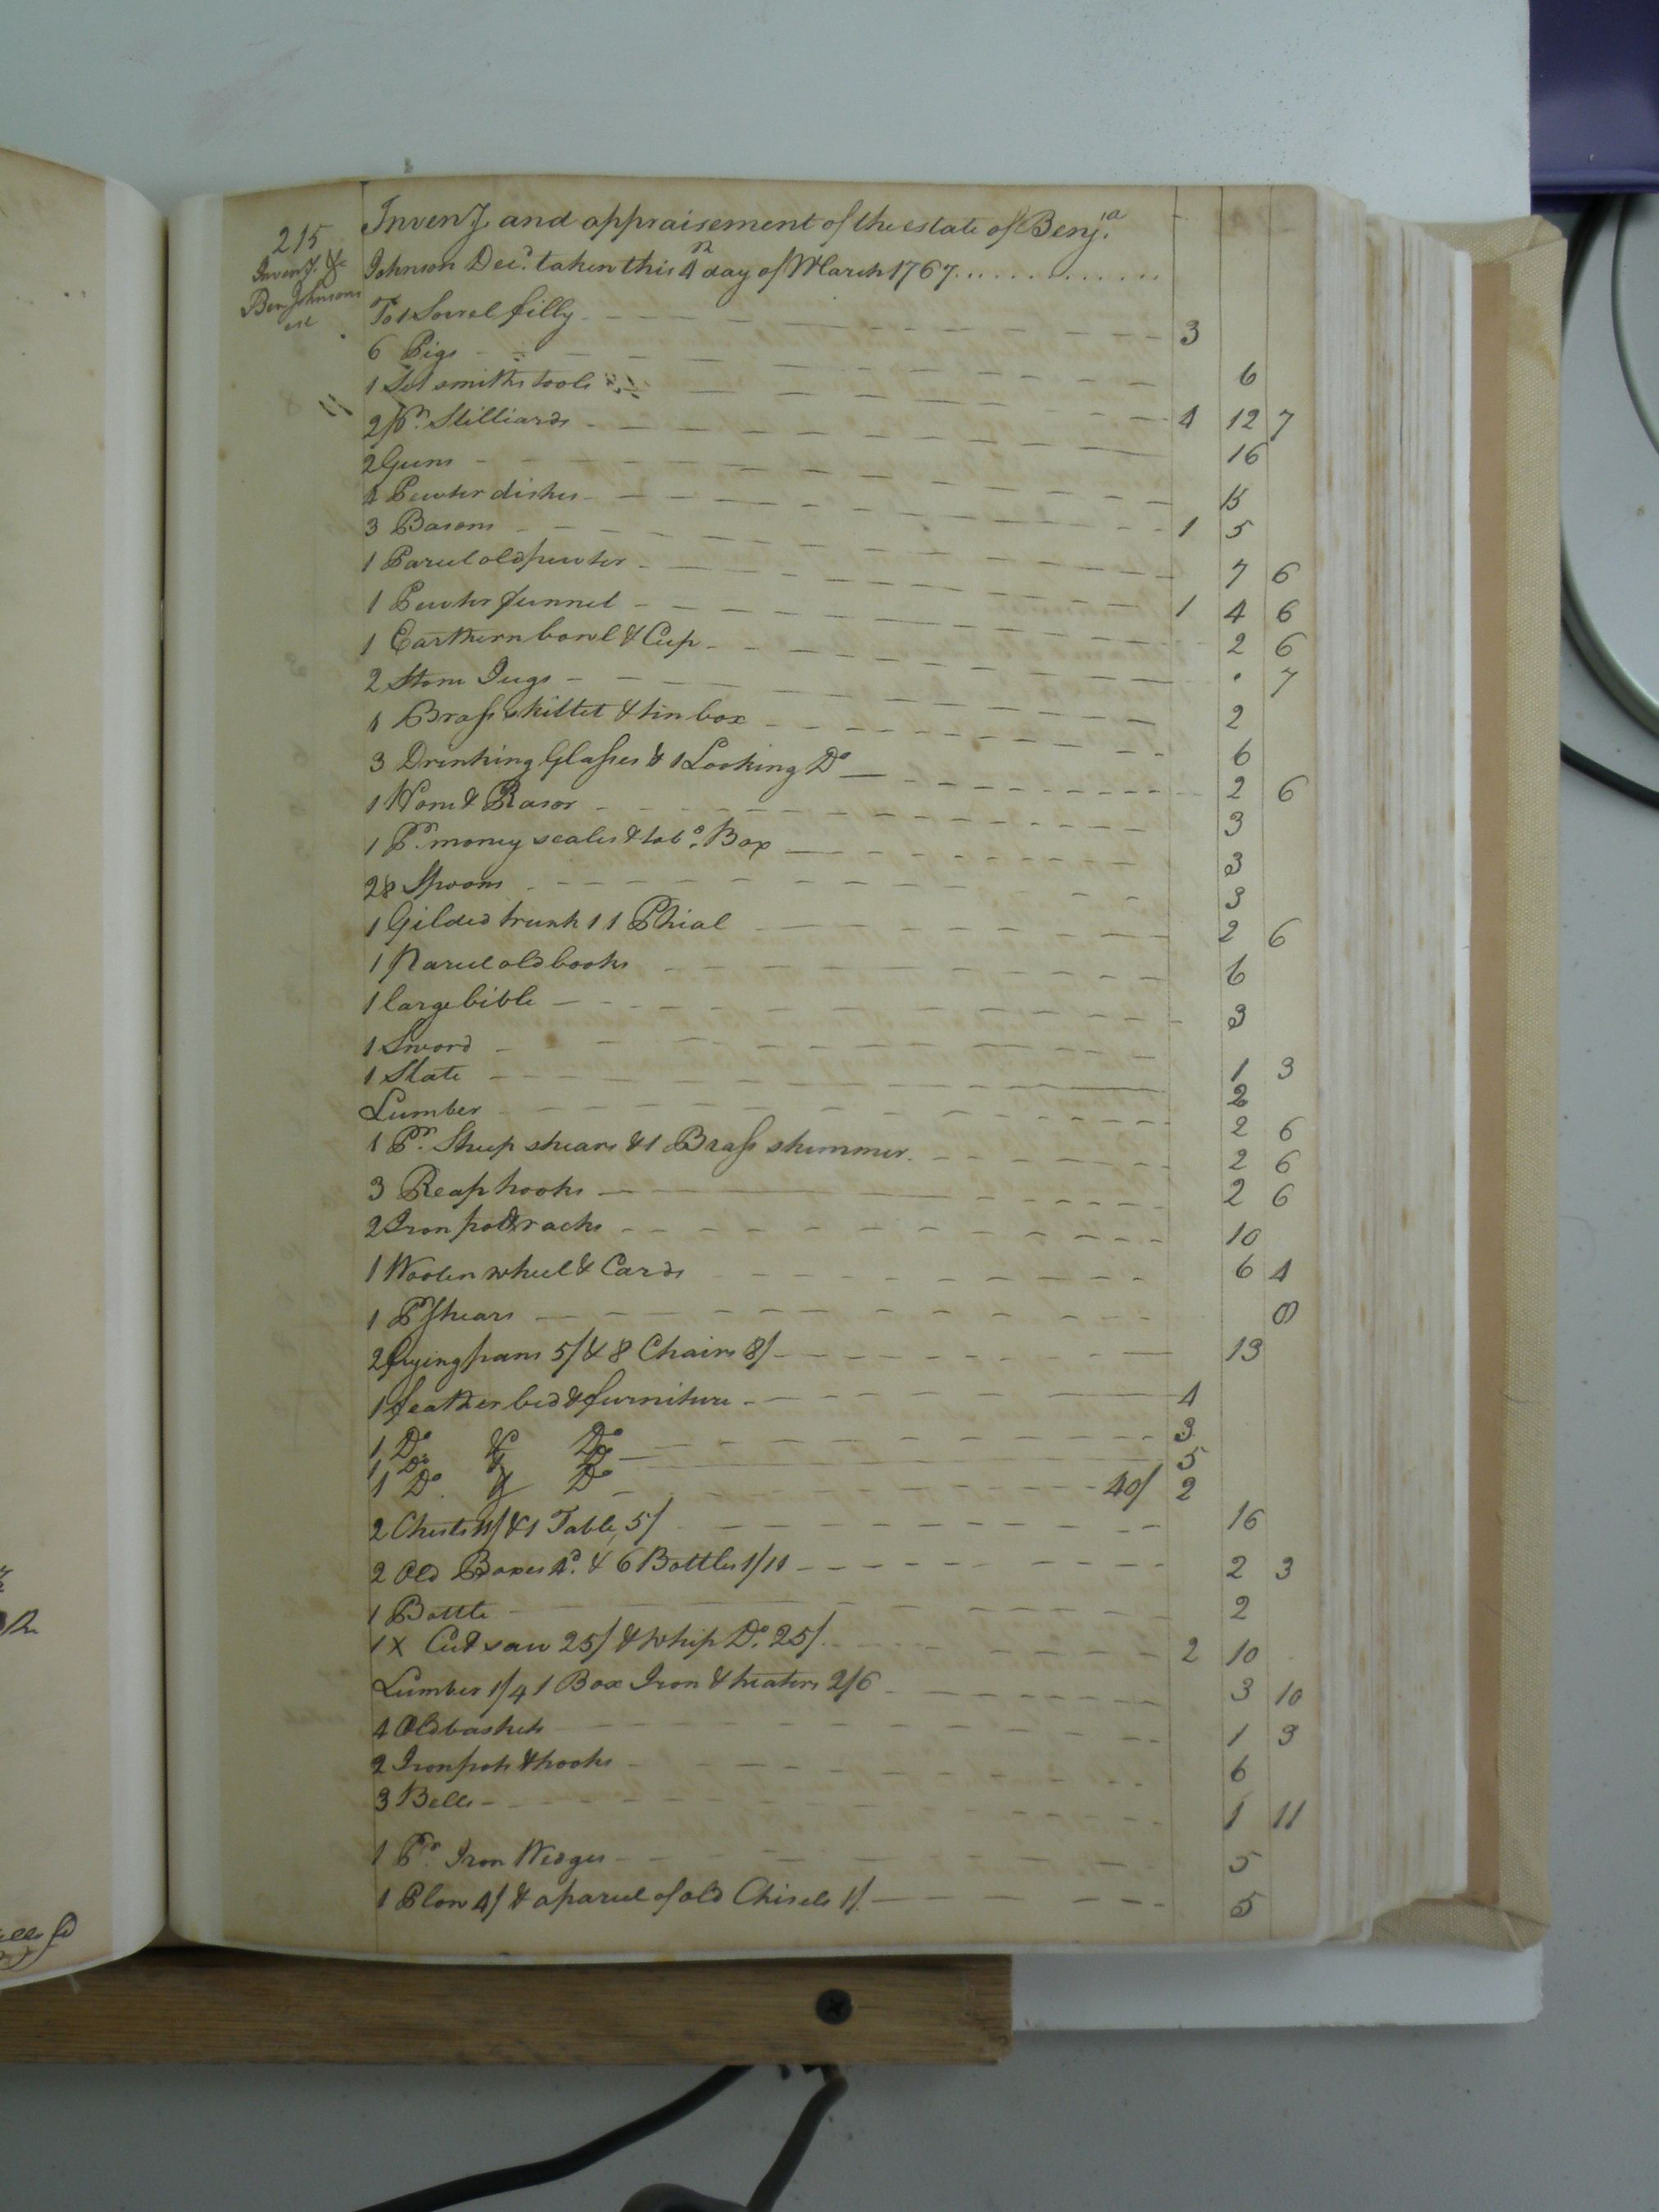 215
Inven.y &c
Ben Johnsons
est
Inven.y and appraisement of the estate of Benj.a
Johnson Dec.d taken this 4th day of March 1767
To 1 Sorrel filly 3
6 Pigs 6
1 Set smiths tools 4 12 7
2 Pr. Stilliards 16
2 Guns 15
4 Pewter dishes 1 5
3 Basons 7 6
1 Parcel old pewter 1 4 6
1 Pewter funnel 2 6
1 Earthern bowl & Cup . 7
2 Stone Jugs 2
1 Brass skillet & tin box 6
3 Drinking Glasses & 1 Looking Do 2 6
1 Hone & Rasor 3
1 Pr. money scales & tobo. Box 3
28 Spoons 3
1 Gilded trunk 11 Phial 2 6
1 Parcel old books 6
1 large bible 3
1 Sword 1 3
1 Slate 2
Lumber 2 6
1 Pr. Sheep shears & 1 Brass skimmer 2 6
3 Reap hooks 2 6
2 Iron pot racks 10
1 Woolen wheel & Cards 6 4
1 Pr Shears 0
2 frying pans 5/ & 8 Chairs 8/ 13
1 feather bed & furniture 4
1 Do & Do 3
1 Do & Do 5
1 Do & Do 40/ 2
2 Chests 11/ & 1 Table 5/ 16
2 Old Boxes 4d. & 6 Bottles 1/11 2 3
1 Bottle 2
1 X Cut saw 25/ & whip Do. 25/. 2 10
Lumber 1/4 1 Box Iron & heaters 2/6 3 10
4 Old baskets 1 3
2 Iron pots & hooks 6
3 Bells 1 11
1 Pr. Iron Wedges 5
1 Plow 4/ & a parcel of old Chisels 1/ 5